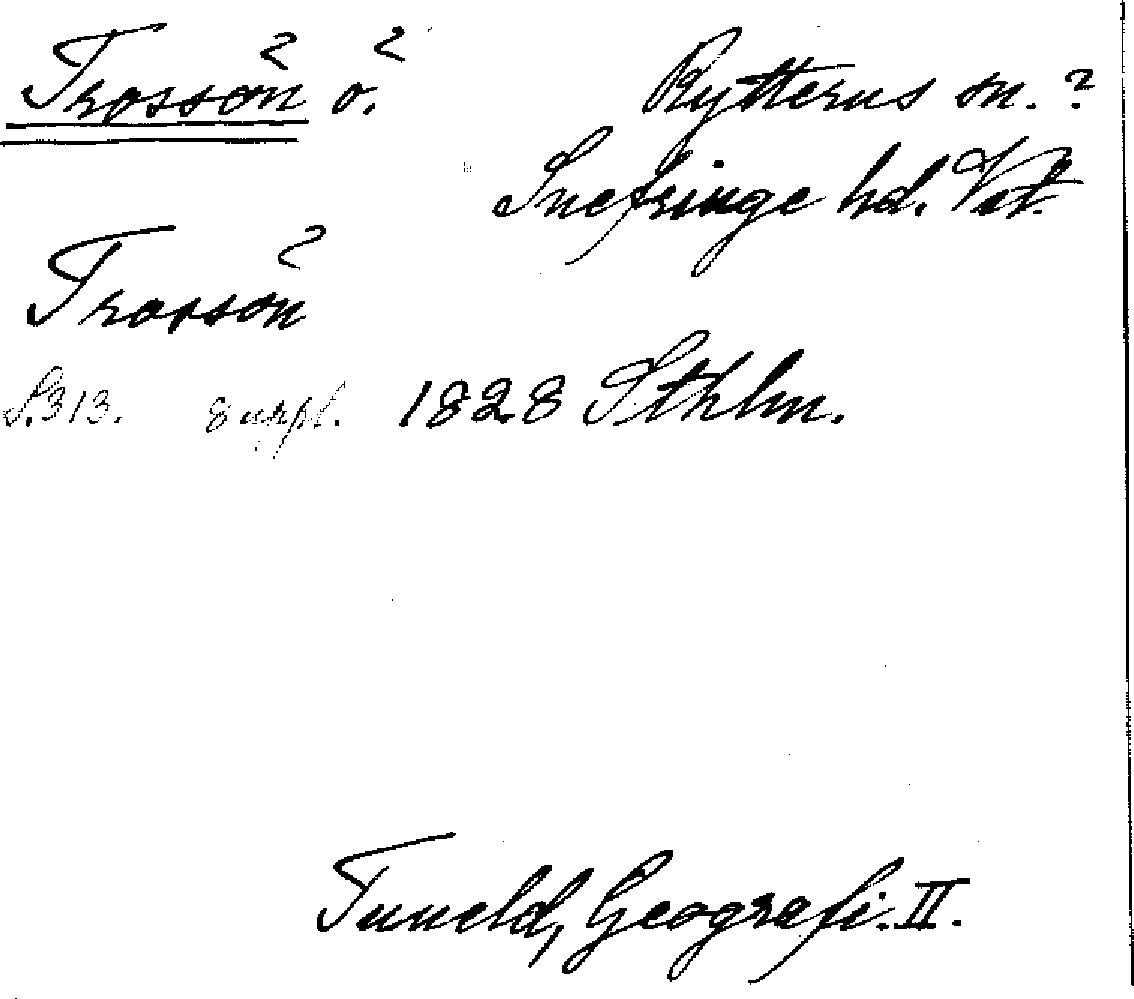 Trossön ö. Rytterns sn. ?
Snefringe hd. Vstm.
Trossön
S. 313. 8 uppl. 1828 Sthlm.
Tuneld, Geografi. II.